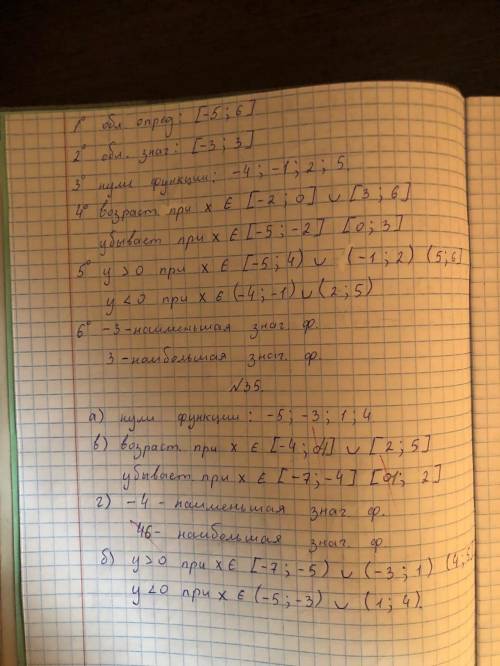 1° обл. опред: [-5; 6]
2° обл. знач: [-3; 3]
3° нули функции: -4; -1; 2; 5.
4° возраст при x ∈ [-2; 0] ∪ [3; 6]
убывает при x ∈ [-5; -2] [0; 3]
5° y > 0 при x ∈ [-5; 4) ∪ (-1; 2) (5; 6]
y < 0 при x ∈ (-4; -1) ∪ (2; 5)
6° -3 - наименьшая знач. ф.
3 - наибольшая знач. ф.
№35.
а) нули функции: -5; -3; 1; 4
в) возраст. при x ∈ [-4; ] ∪ [2; 5]
убывает при x ∈ [-7; -4] [ ; 2]
г) -4 - наименьшая знач ф.
6 - наибольшая знач. ф
б) y > 0 при x ∈ [-7; -5) ∪ (-3; 1) (4;
y < 0 при x ∈ (-5; -3) ∪ (1; 4).